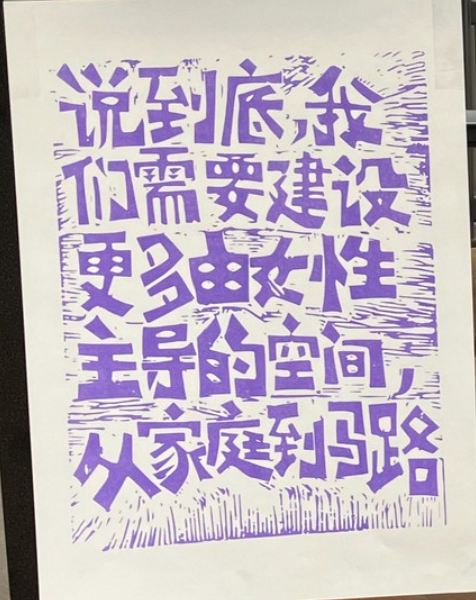 说到底,我
们需要建设
更多由女性
主导的空间,
从家庭到马路